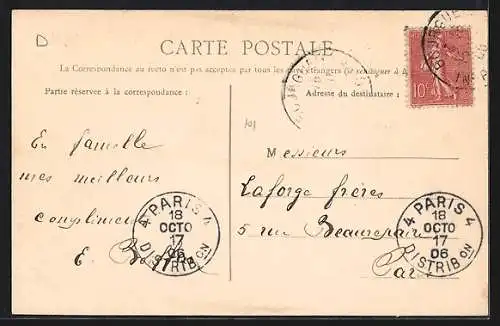 D
CARTE POSTALE
La Correspondance au recto n'est pas acceptée par tous les pays étrangers (se renseigner à
Partie réservée à la correspondance :
Adresse du destinataire :
10c
101
En famille
mes meilleurs
E.
Messieurs
Laforge frères
5 rue Beaurepaire
4 PARIS 4
18
OCTO
17
06
DISTRIBON
4 PARIS 4
18
OCTO
17
06
DISTRIBON